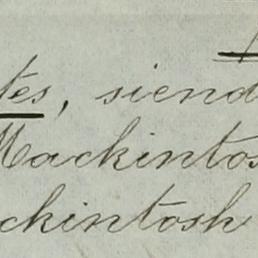 tes, siend
Mackintos
ckintosh